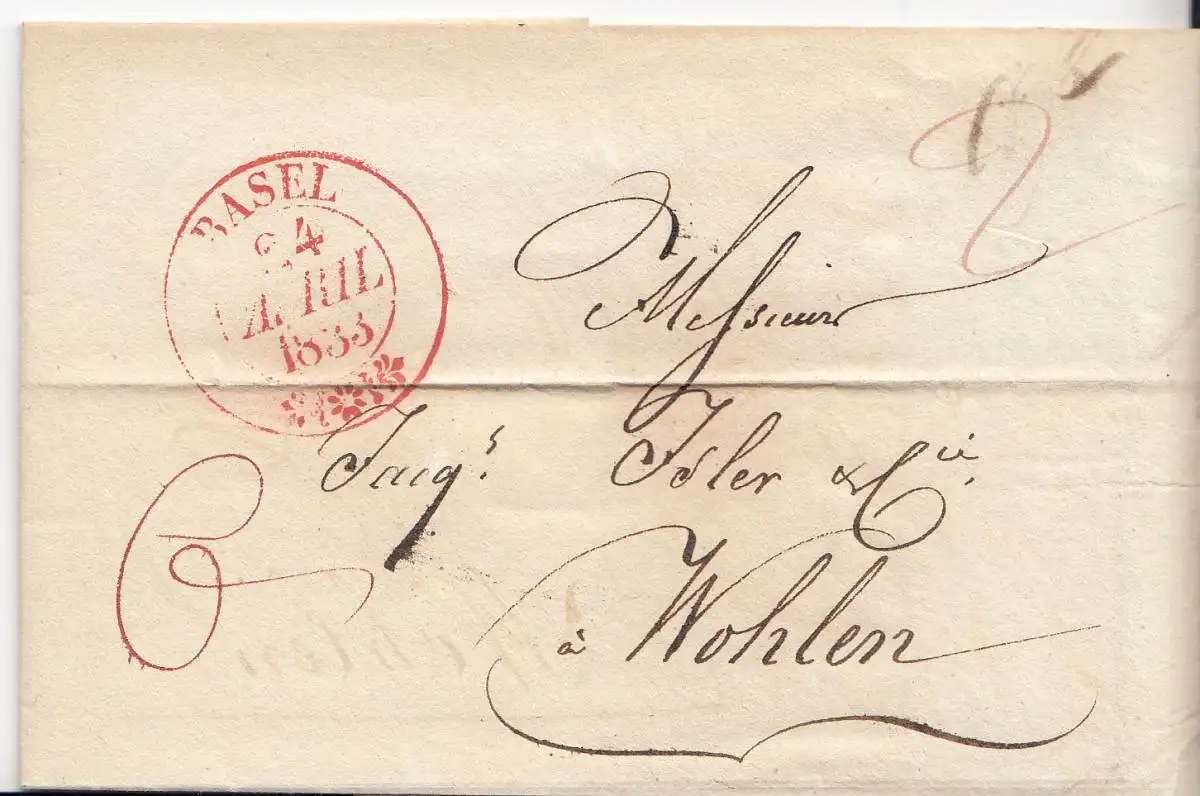 BASEL
24
APRIL
1833
2
Messieurs
Jacqs. Isler & Cie.
6
à Wohlen